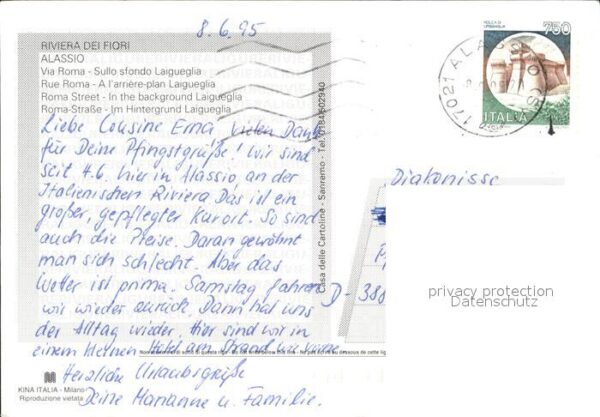 8.6.95
RIVIERA DEI FIORI
ALASSIO
Via Roma - Sullo sfondo Laigueglia
Rue Roma - A l'arrière-plan Laigueglia
Roma Street - In the background Laigueglia
Roma-Straße - Im Hintergrund Laigueglia
Liebe Cousine Erna, vielen Dank
für Deine Pfingstgrüße! Wir sind
seit 4.6. hier in Alassio an der
Italienischen Riviera. Das ist ein
großer, gepflegter Kurort. So sind
auch die Preise. Daran gewöhnt
man sich schlecht. Aber das
Wetter ist prima. Samstag fahren
wir wieder zurück. Dann hat uns
der Alltag wieder. Hier sind wir in
einem kleinen Hotel am Strand
Herzliche Urlaubsgrüße
Deine Marianne u. Familie.
KINA ITALIA - Milano
Riproduzione vietata
Casa delle Cartoline - Sanremo - Tel.
750
ITALIA
17021 ALASSIO
Diakonisse
D-388
privacy protection
Datenschutz